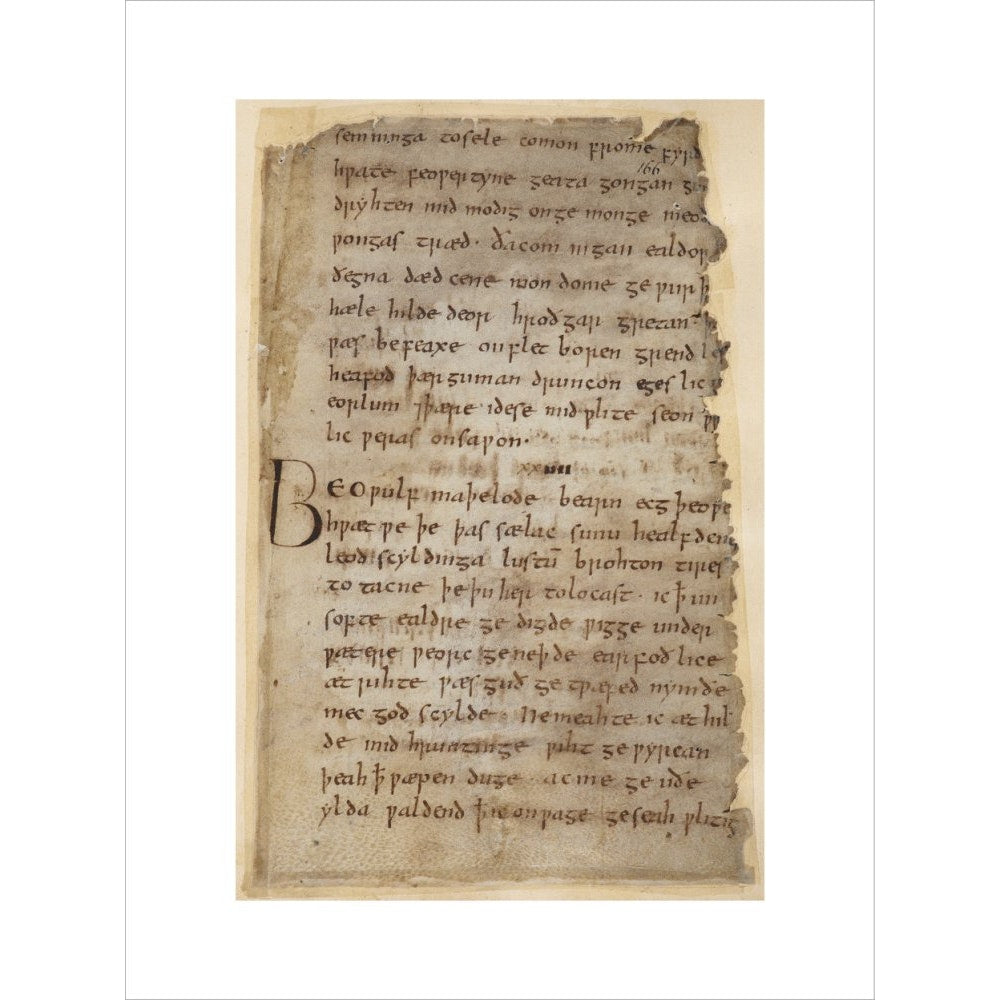 semninga tosele comon frome fyrd
166
hƿate feoƿertyne geata gongan
dryhten mid modig onge monge meod
ƿongas træd· ðacom ingan ealdor
ðegna dæd cene mon dome ge ƿurþ
hæle hilde deor hroðgar gretan·
ƿæs be feaxe onflet boren grend
heafod þær guman druncon eges lic
eorlum ⁊þære idese mid ƿlite seon
lic ƿeras onsaƿon·
xxiiii
BEOƿulf maþelode bearn ecg þeoƿe
hƿæt ƿe þe þas sælac sunu healfden
leod scyldinga lustū brohton tires
to tacne þe þu her tolocast· ic ꝥ un
softe ealdre ge digde ƿigge under
ƿætere ƿeorc geneþde earfod lice
æt rihte ƿæs guð ge tƿæfed nymðe
mec god scylde· Ne meahte ic æt hil
de mid hruntinge ƿiht ge ƿyrcan
þeah ꝥ ƿæpen duge ac me ge uðe
ylda ƿaldend ꝥ ic on ƿage geseah ƿlitig